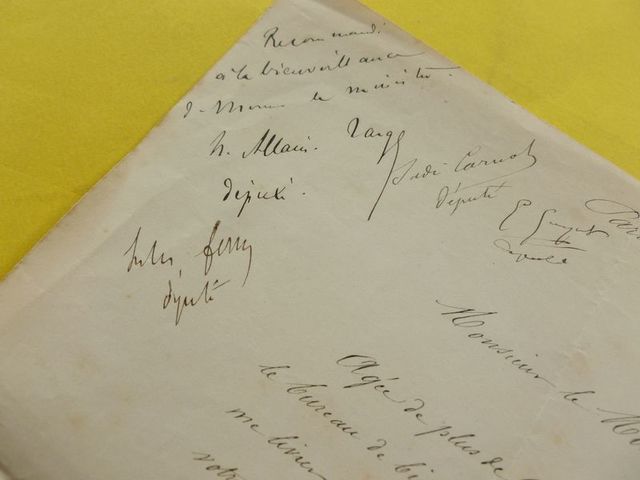 Recommandé
à la bienveillance
de Monsieur le ministre.
h. Allain. Targé
député.
Sadi Carnot
député
E Guyot
député
Jules ferry
député
Paris
Monsieur le Mi
Agée de plus de
le bureau de
me livrer
votre